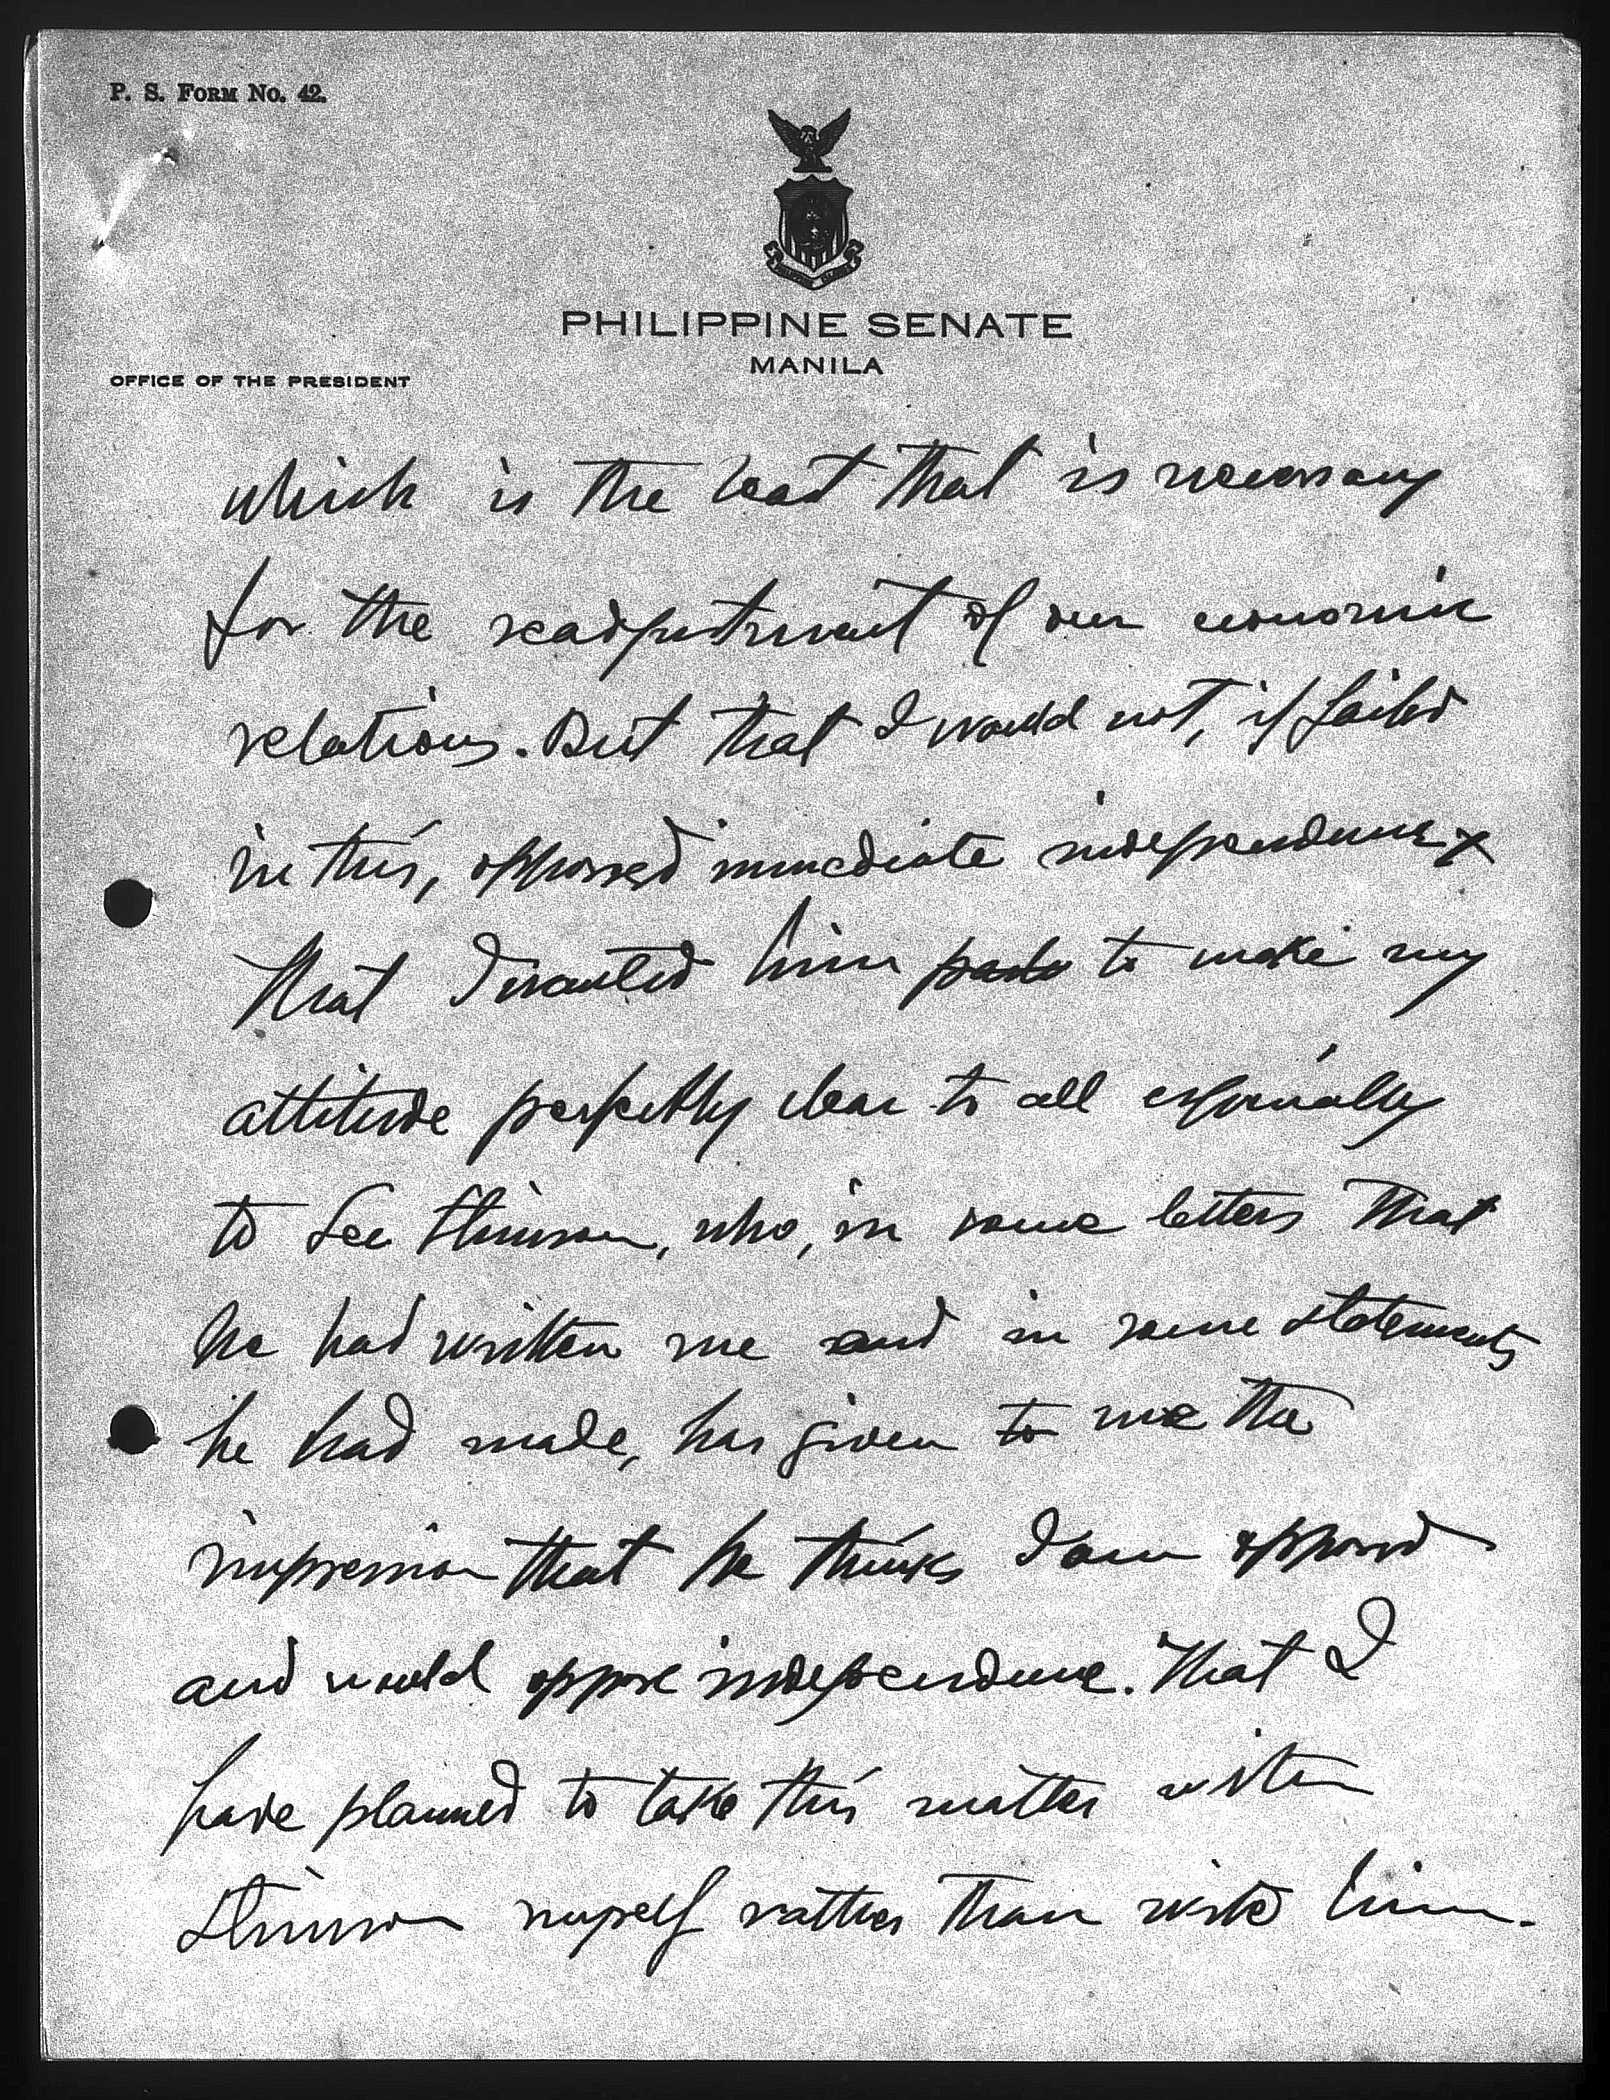 P. S. FORM NO. 42.
PHILIPPINE SENATE
MANILA
OFFICE OF THE PRESIDENT
which is the least that is necessary
for the readjustment of our economic
relations. But that I would not, if failed
in this, opposed immediate independence
That I wanted him to make my
attitude perfectly clear to all especially
to Sec Stimson, who, in some letters that
he had written me and in some statements
he had made, has given to me the
impression that he thinks I am opposed
and would oppose independence. That I
have planned to take this matter with
Stimson myself rather than write him.